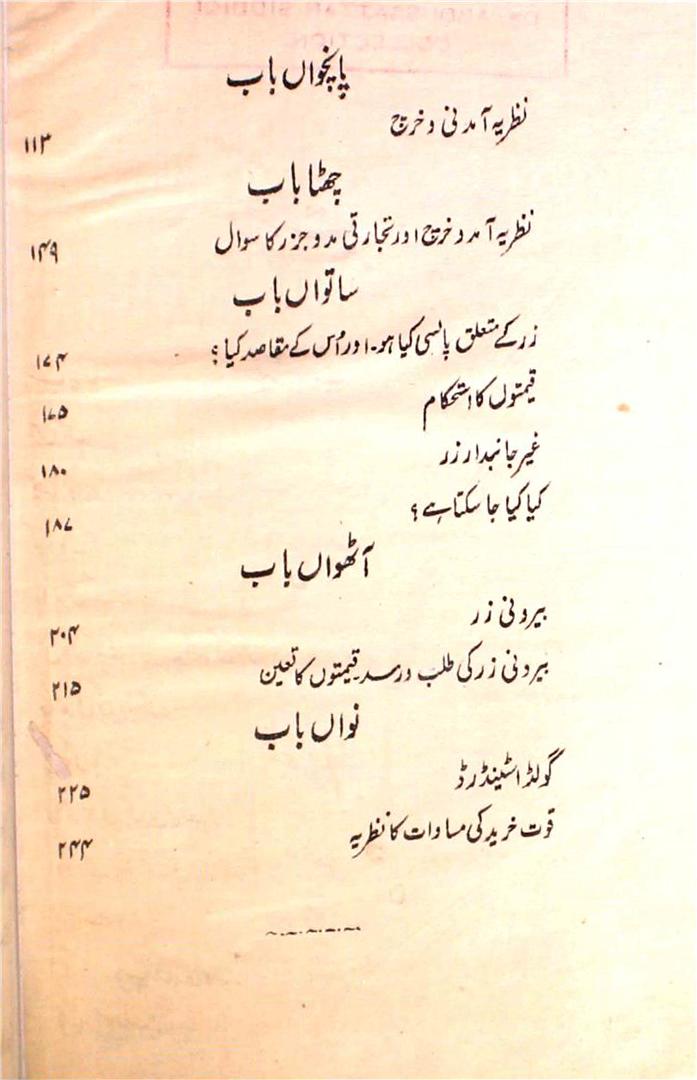 پانچواں باب
نظریہ آمدنی و خرچ ۱۱۳
چھٹا باب
نظریہ آمد و خرچ اور تجارتی مد و جزر کا سوال ۱۴۹
ساتواں باب
زر کے متعلق پالسی کیا ہو۔ اور اُس کے مقاصد کیا؟ ۱۷۴
قیمتوں کا استحکام ۱۷۵
غیر جانبدار زر ۱۸۰
کیا کیا جا سکتا ہے؟ ۱۸۷
آٹھواں باب
بیرونی زر ۲۰۴
بیرونی زر کی طلب و رسد۔ قیمتوں کا تعین ۲۱۵
نواں باب
گولڈ اسٹینڈرڈ ۲۲۵
قوت خرید کی مساوات کا نظریہ ۲۴۴